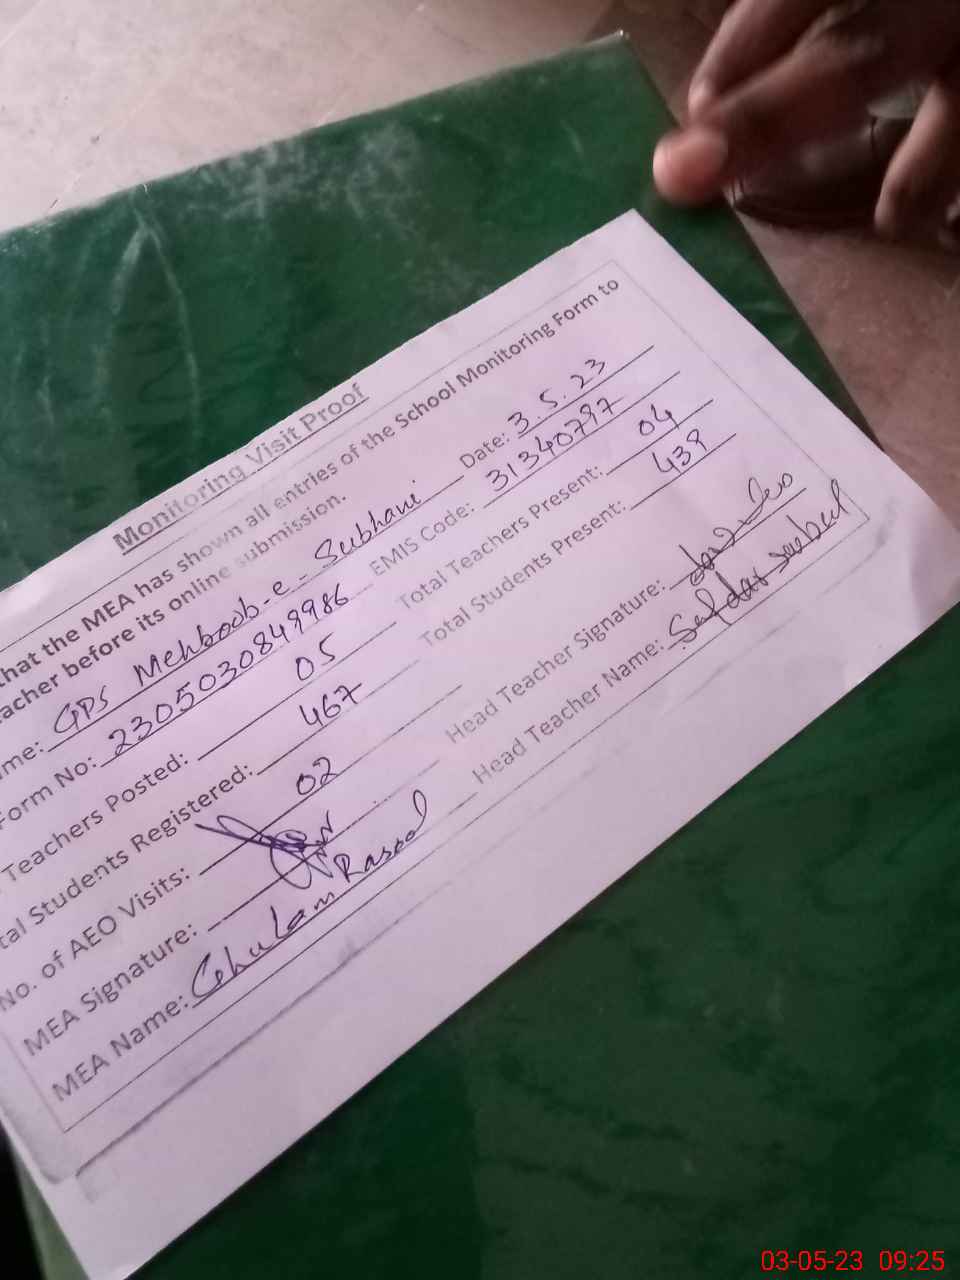 Monitoring Visit Proof
that the MEA has shown all entries of the School Monitoring Form to
acher before its online submission.
me: GPS Mehboob-e-Subhani Date: 3.5.23
Form No: 2305030849986 EMIS Code: 31340797
Teachers Posted: 05 Total Teachers Present: 04
tal Students Registered: 467 Total Students Present: 439
No. of AEO Visits: 02
MEA Signature: Head Teacher Signature:
MEA Name: Ghulam Rasool Head Teacher Name: Safdar
03-05-23 09:25